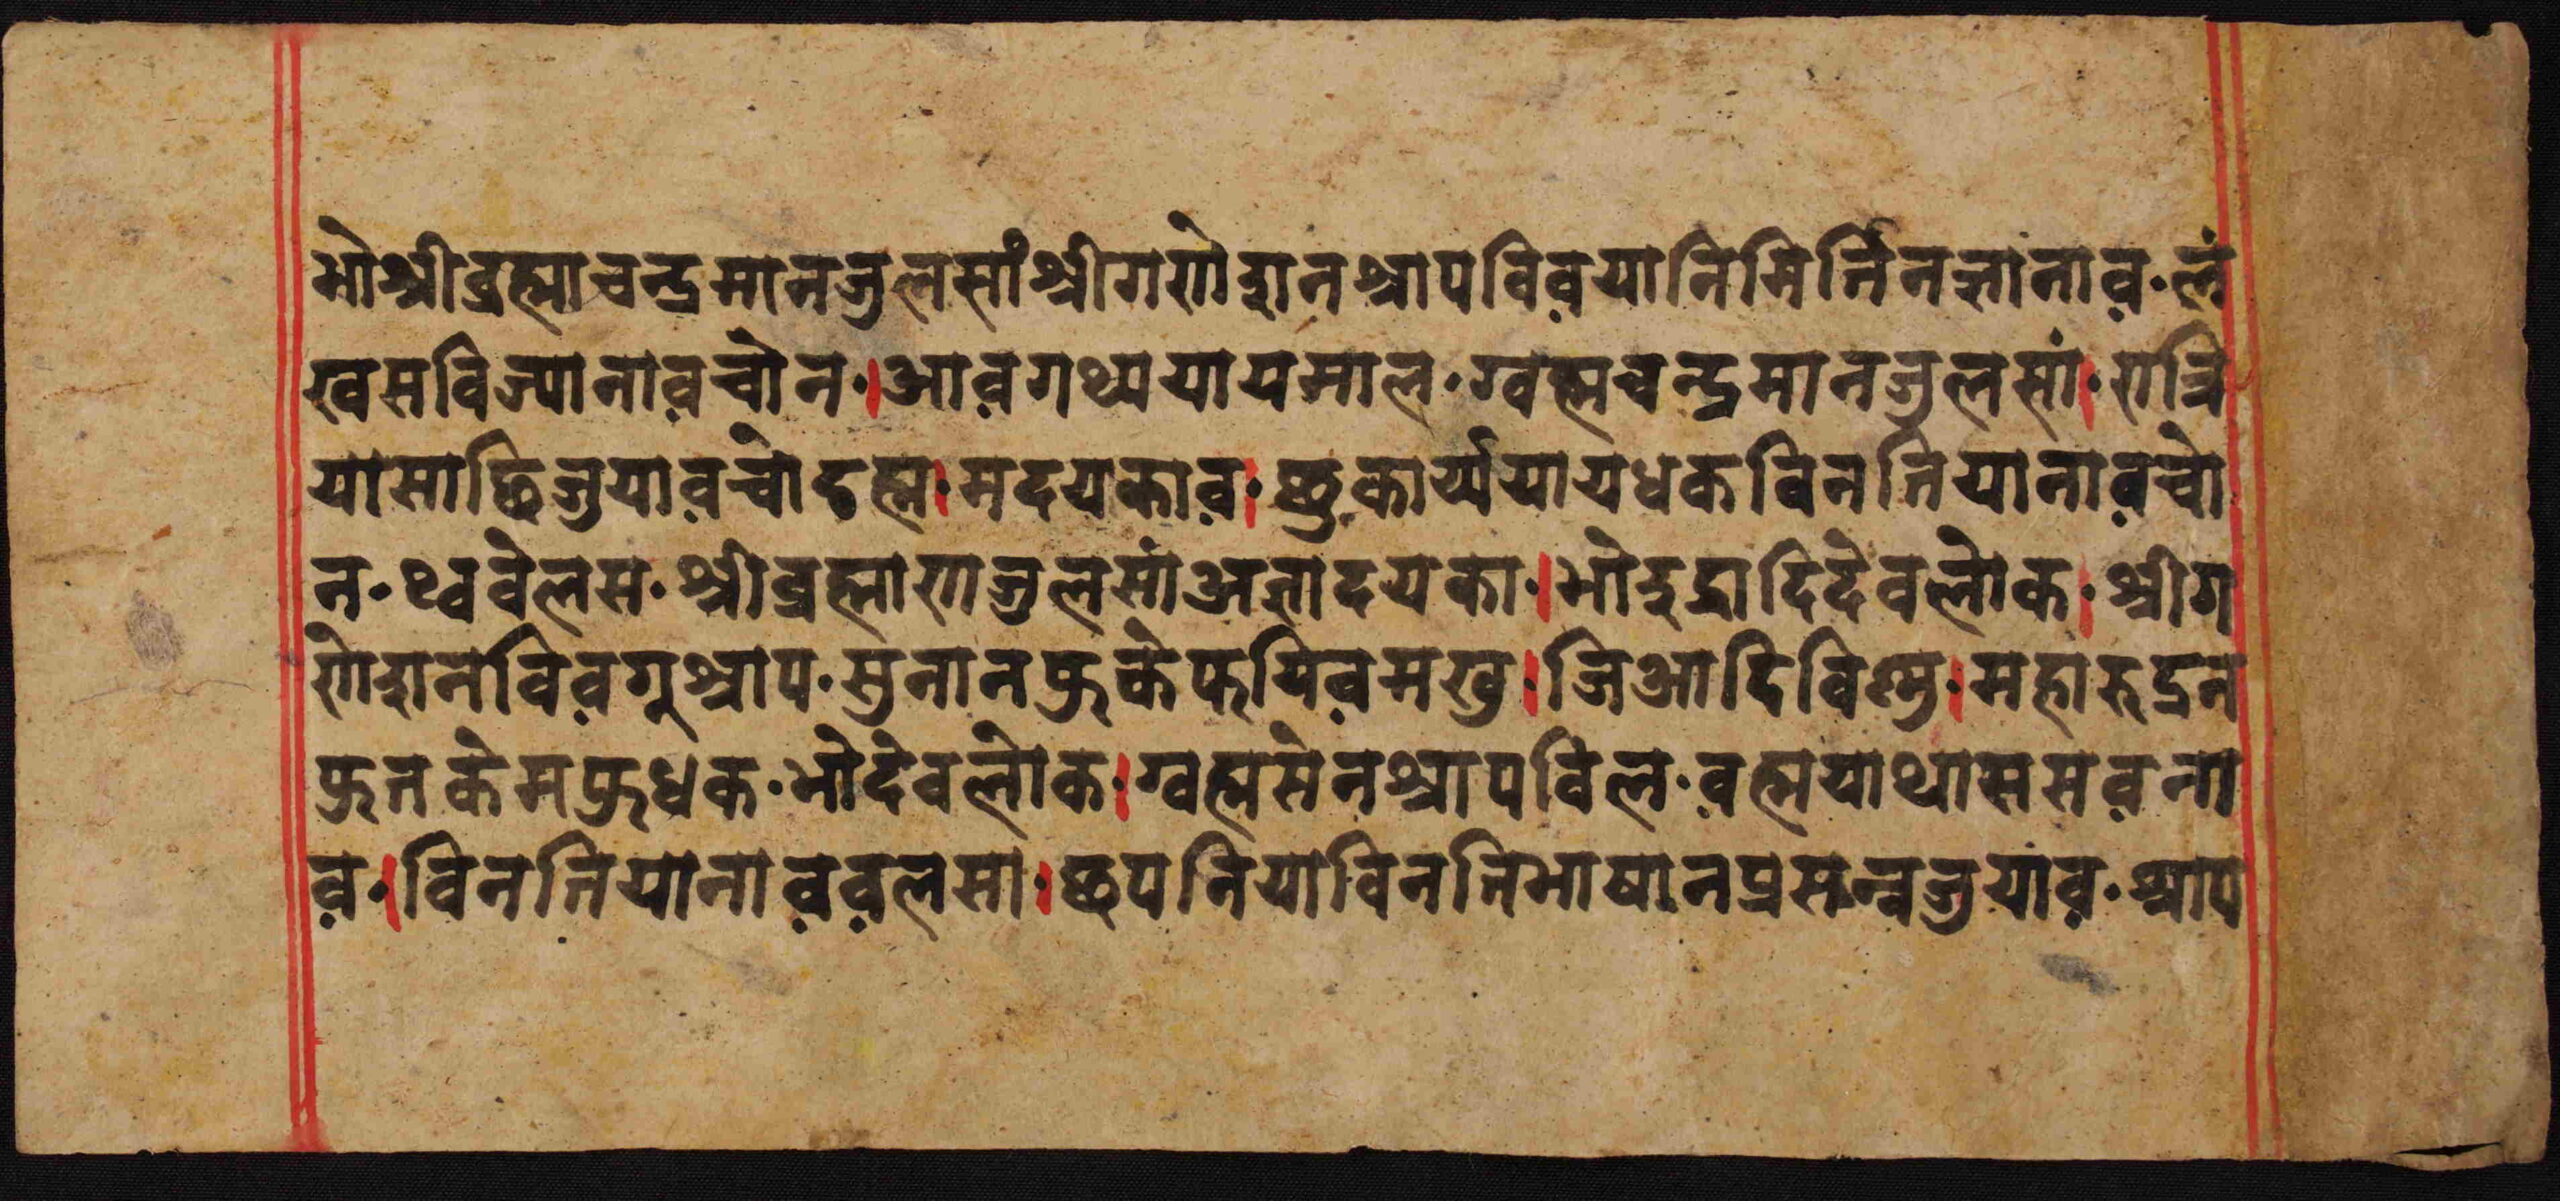 भोश्रीब्रह्माचन्द्रमानजुलसांश्रीगणेशनश्रापविवयानिमिर्त्तिनज्ञानाव·लं
खसविज्यानावचोन·।आवगथ्ययायमाल·ग्वह्मचन्द्रमानजुलसां।·रात्रि
यासाछिजुयावचोदह्म।·मदयकाव।·छुकार्य्ययायधकविनतियानावचो
न·थ्ववेलस·श्रीब्रह्माणजुलसांअज्ञादयका·।भोइद्रादिदेवलोक।·श्रीग
णेशनविवगूश्राप·सुनानफुकेफयिवमखु।·जिआदिविष्णु·।महारुद्रन
फुतकेमफुधक·भोदेवलोक।·ग्वह्मसेनश्रापविल·वह्मयाथाससवना
व·।विनतियानाववलसा।·छपनियाविनतिभाषानप्रसन्नजुयाव·श्राप